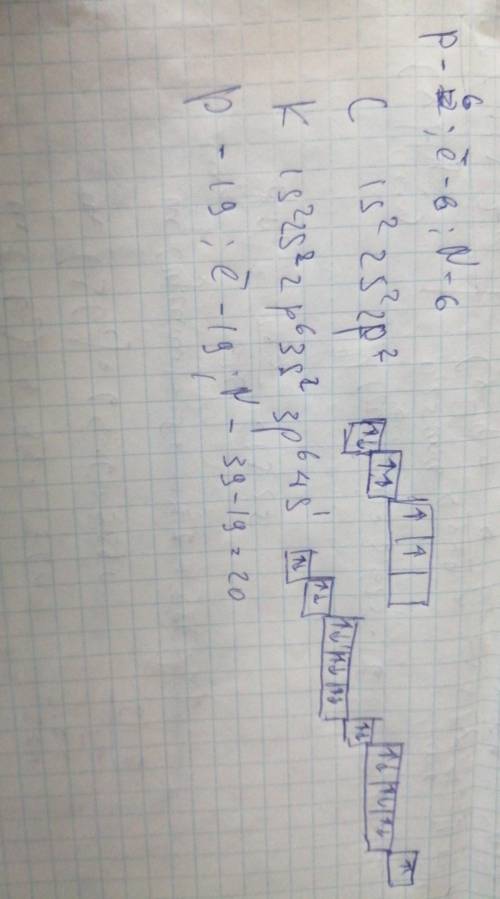 p - 6 ; ē - 6 ; N - 6
C 1s² 2s² 2p² ↑↓ ↑↓ ↑ ↑
K 1s² 2s² 2p⁶ 3s² 3p⁶ 4s¹ ↑↓ ↑↓ ↑↓ ↑↓ ↑↓ ↑↓ ↑↓ ↑↓ ↑↓ ↑
p - 19 ; ē - 19 ; N - 39-19=20